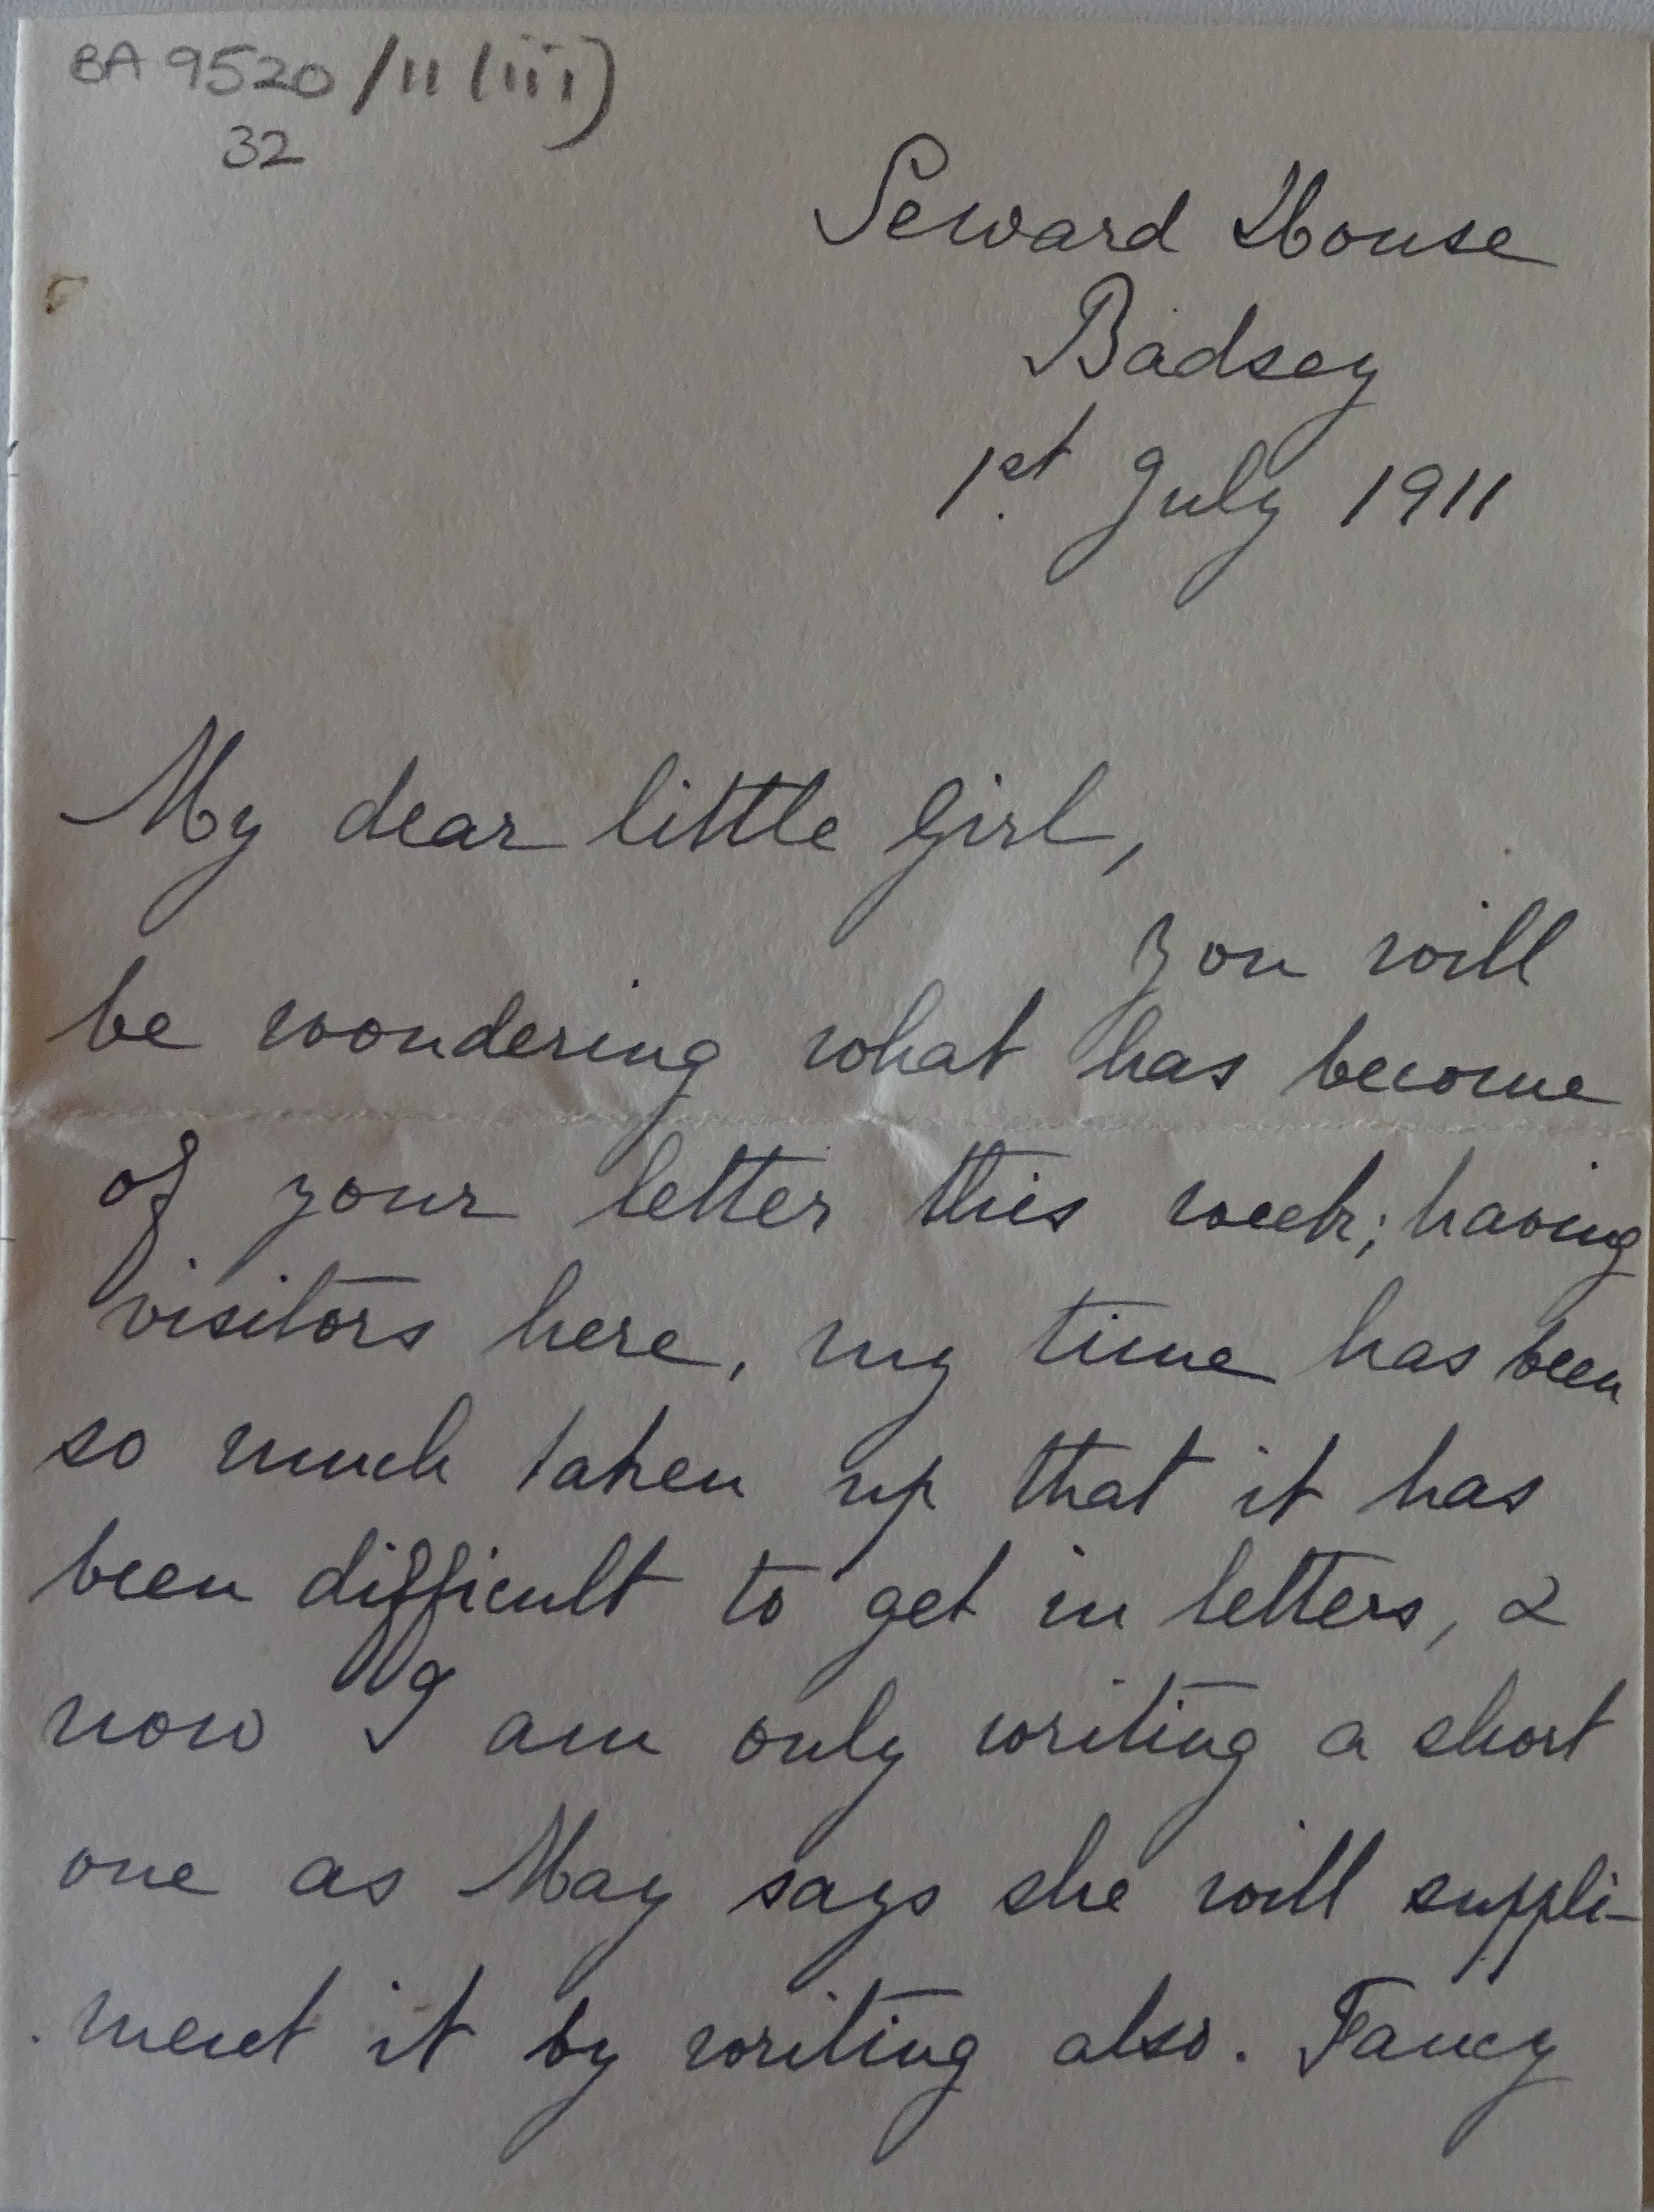 BA 9520/11 (iii)
32
Seward House
Badsey
1st July 1911
My dear little Girl,
You will
be wondering what has become
of your letter this week; having
visitors here, my time has been
so much taken up that it has
been difficult to get in letters, &
now I am only writing a short
one as May says she will suppli-
ment it by writing also. Fancy